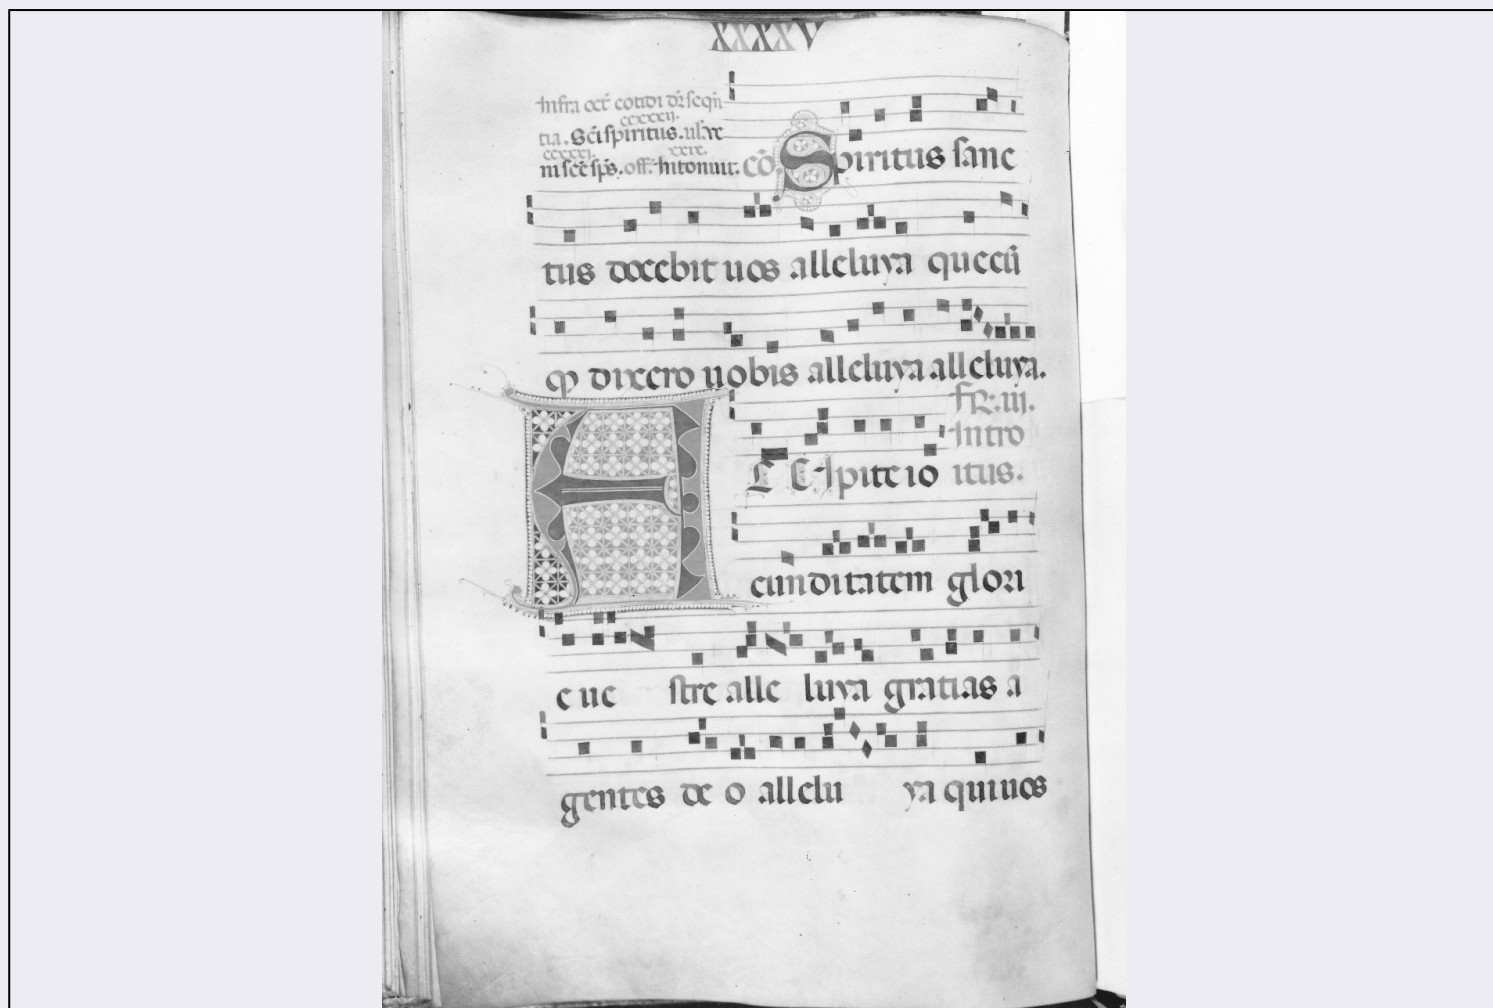 XXXXV
Infra oct̄ cotidi dr̄ seqn̄
tia. Sc̄i spiritus. ccccxii. uł ue
ni sc̄e sp̄s. ccccxi. off. Intonuit. xxix. cō Spiritus sanc
tus docebit uos alleluya quecū
q3 dixero uobis alleluya alleluya.
FR. iii.
Intro
itus.
ACcipite io
cunditatem glori
e ue stre alle luya gratias a
gentes de o allelu ya qui uos